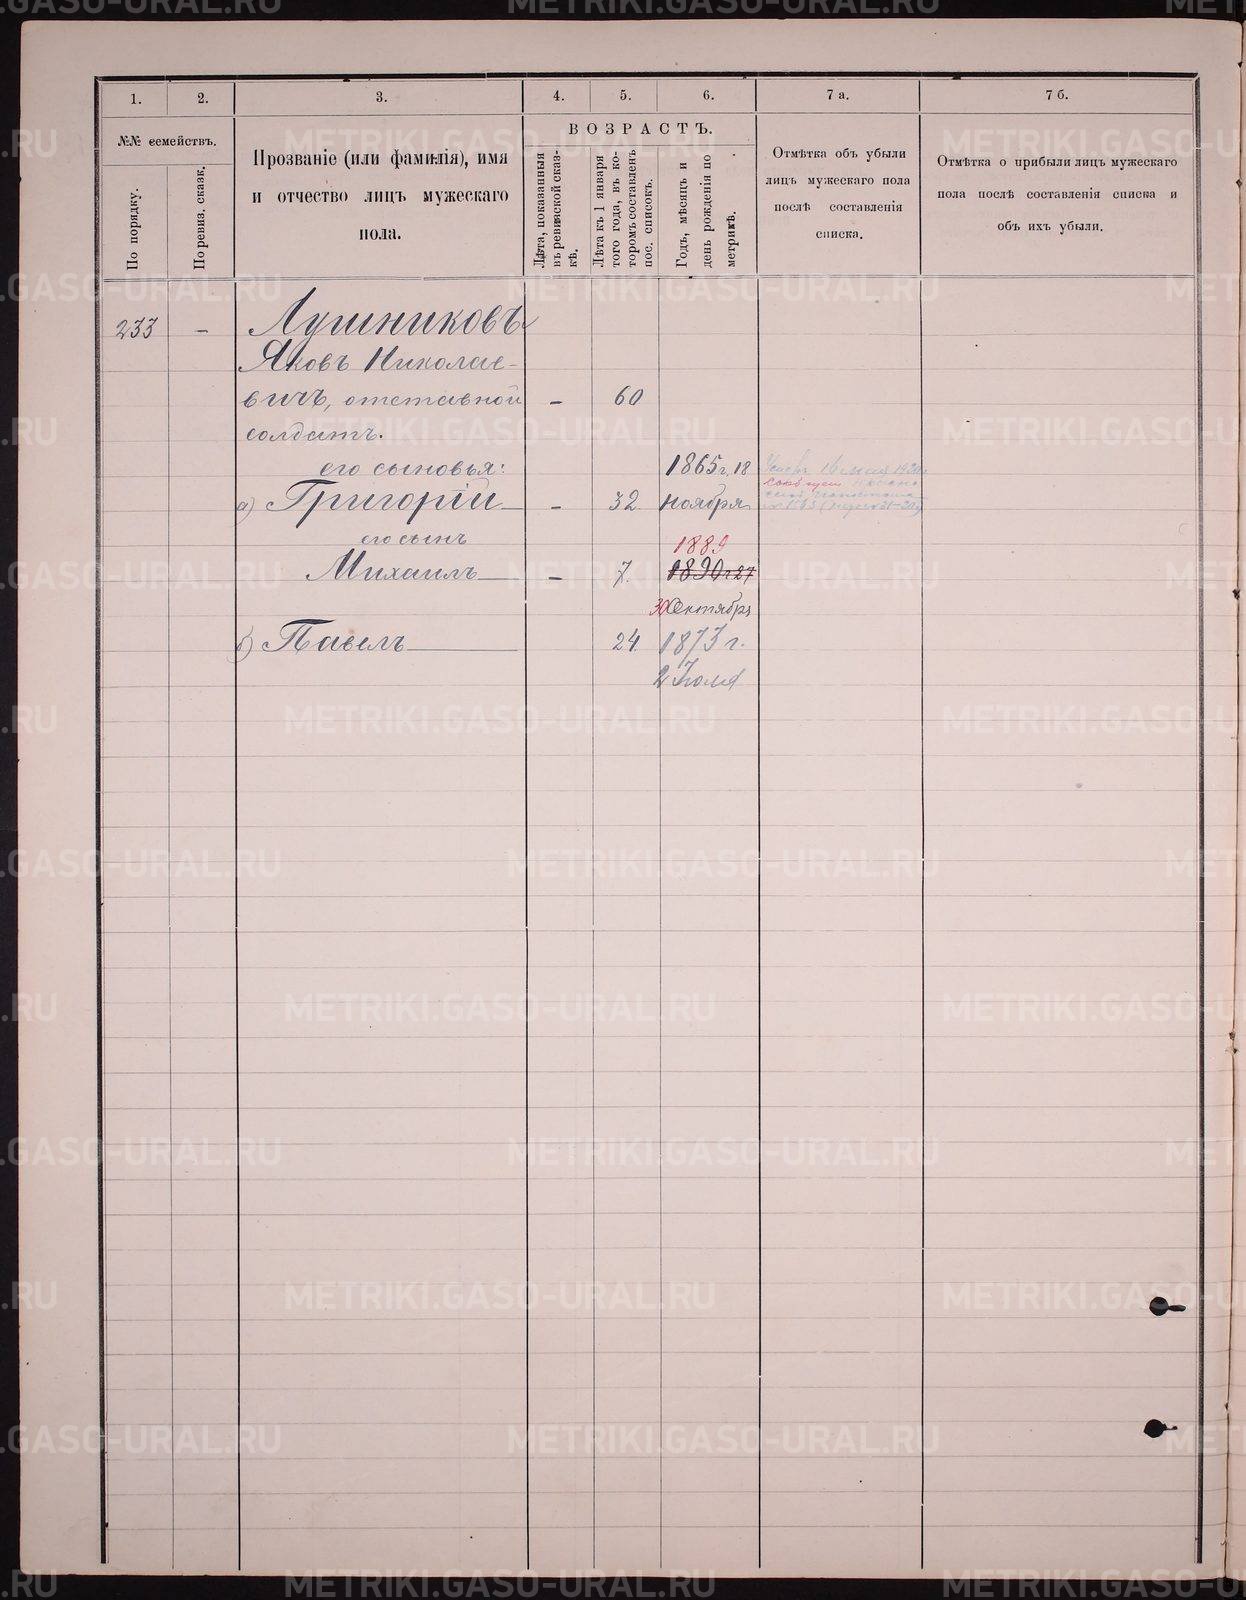 1.
2.
3.
4.
5.
6.
7 а.
7 б.
№№ семействъ.
По порядку.
По ревиз. сказк.
Прозваніе (или фамилія), имя
и отчество лицъ мужескаго
пола.
ВОЗРАСТЪ.
Лѣта, показанныя
въ ревизской сказ-
кѣ.
Лѣта къ 1 января
того года, въ ко-
торомъ составленъ
пос. списокъ.
Годъ, мѣсяцъ и
день рожденія по
метрикѣ.
Отмѣтка объ убыли
лицъ мужескаго пола
послѣ составленія
списка.
Отмѣтка о прибыли лицъ мужескаго
пола послѣ составленія списка и
объ ихъ убыли.
233 – Лушниковъ
Яковъ Николае-
вичъ, отставной – 60
солдатъ.
его сыновья: 1865 г. 18
а) Григорій – 32. ноября
его сынъ 1889
Михаилъ – 7. 1890 г 27
30 Сентября
б) Павелъ 24. 1873 г.
2 Іюля
METRIKI.GASO-URAL.RU